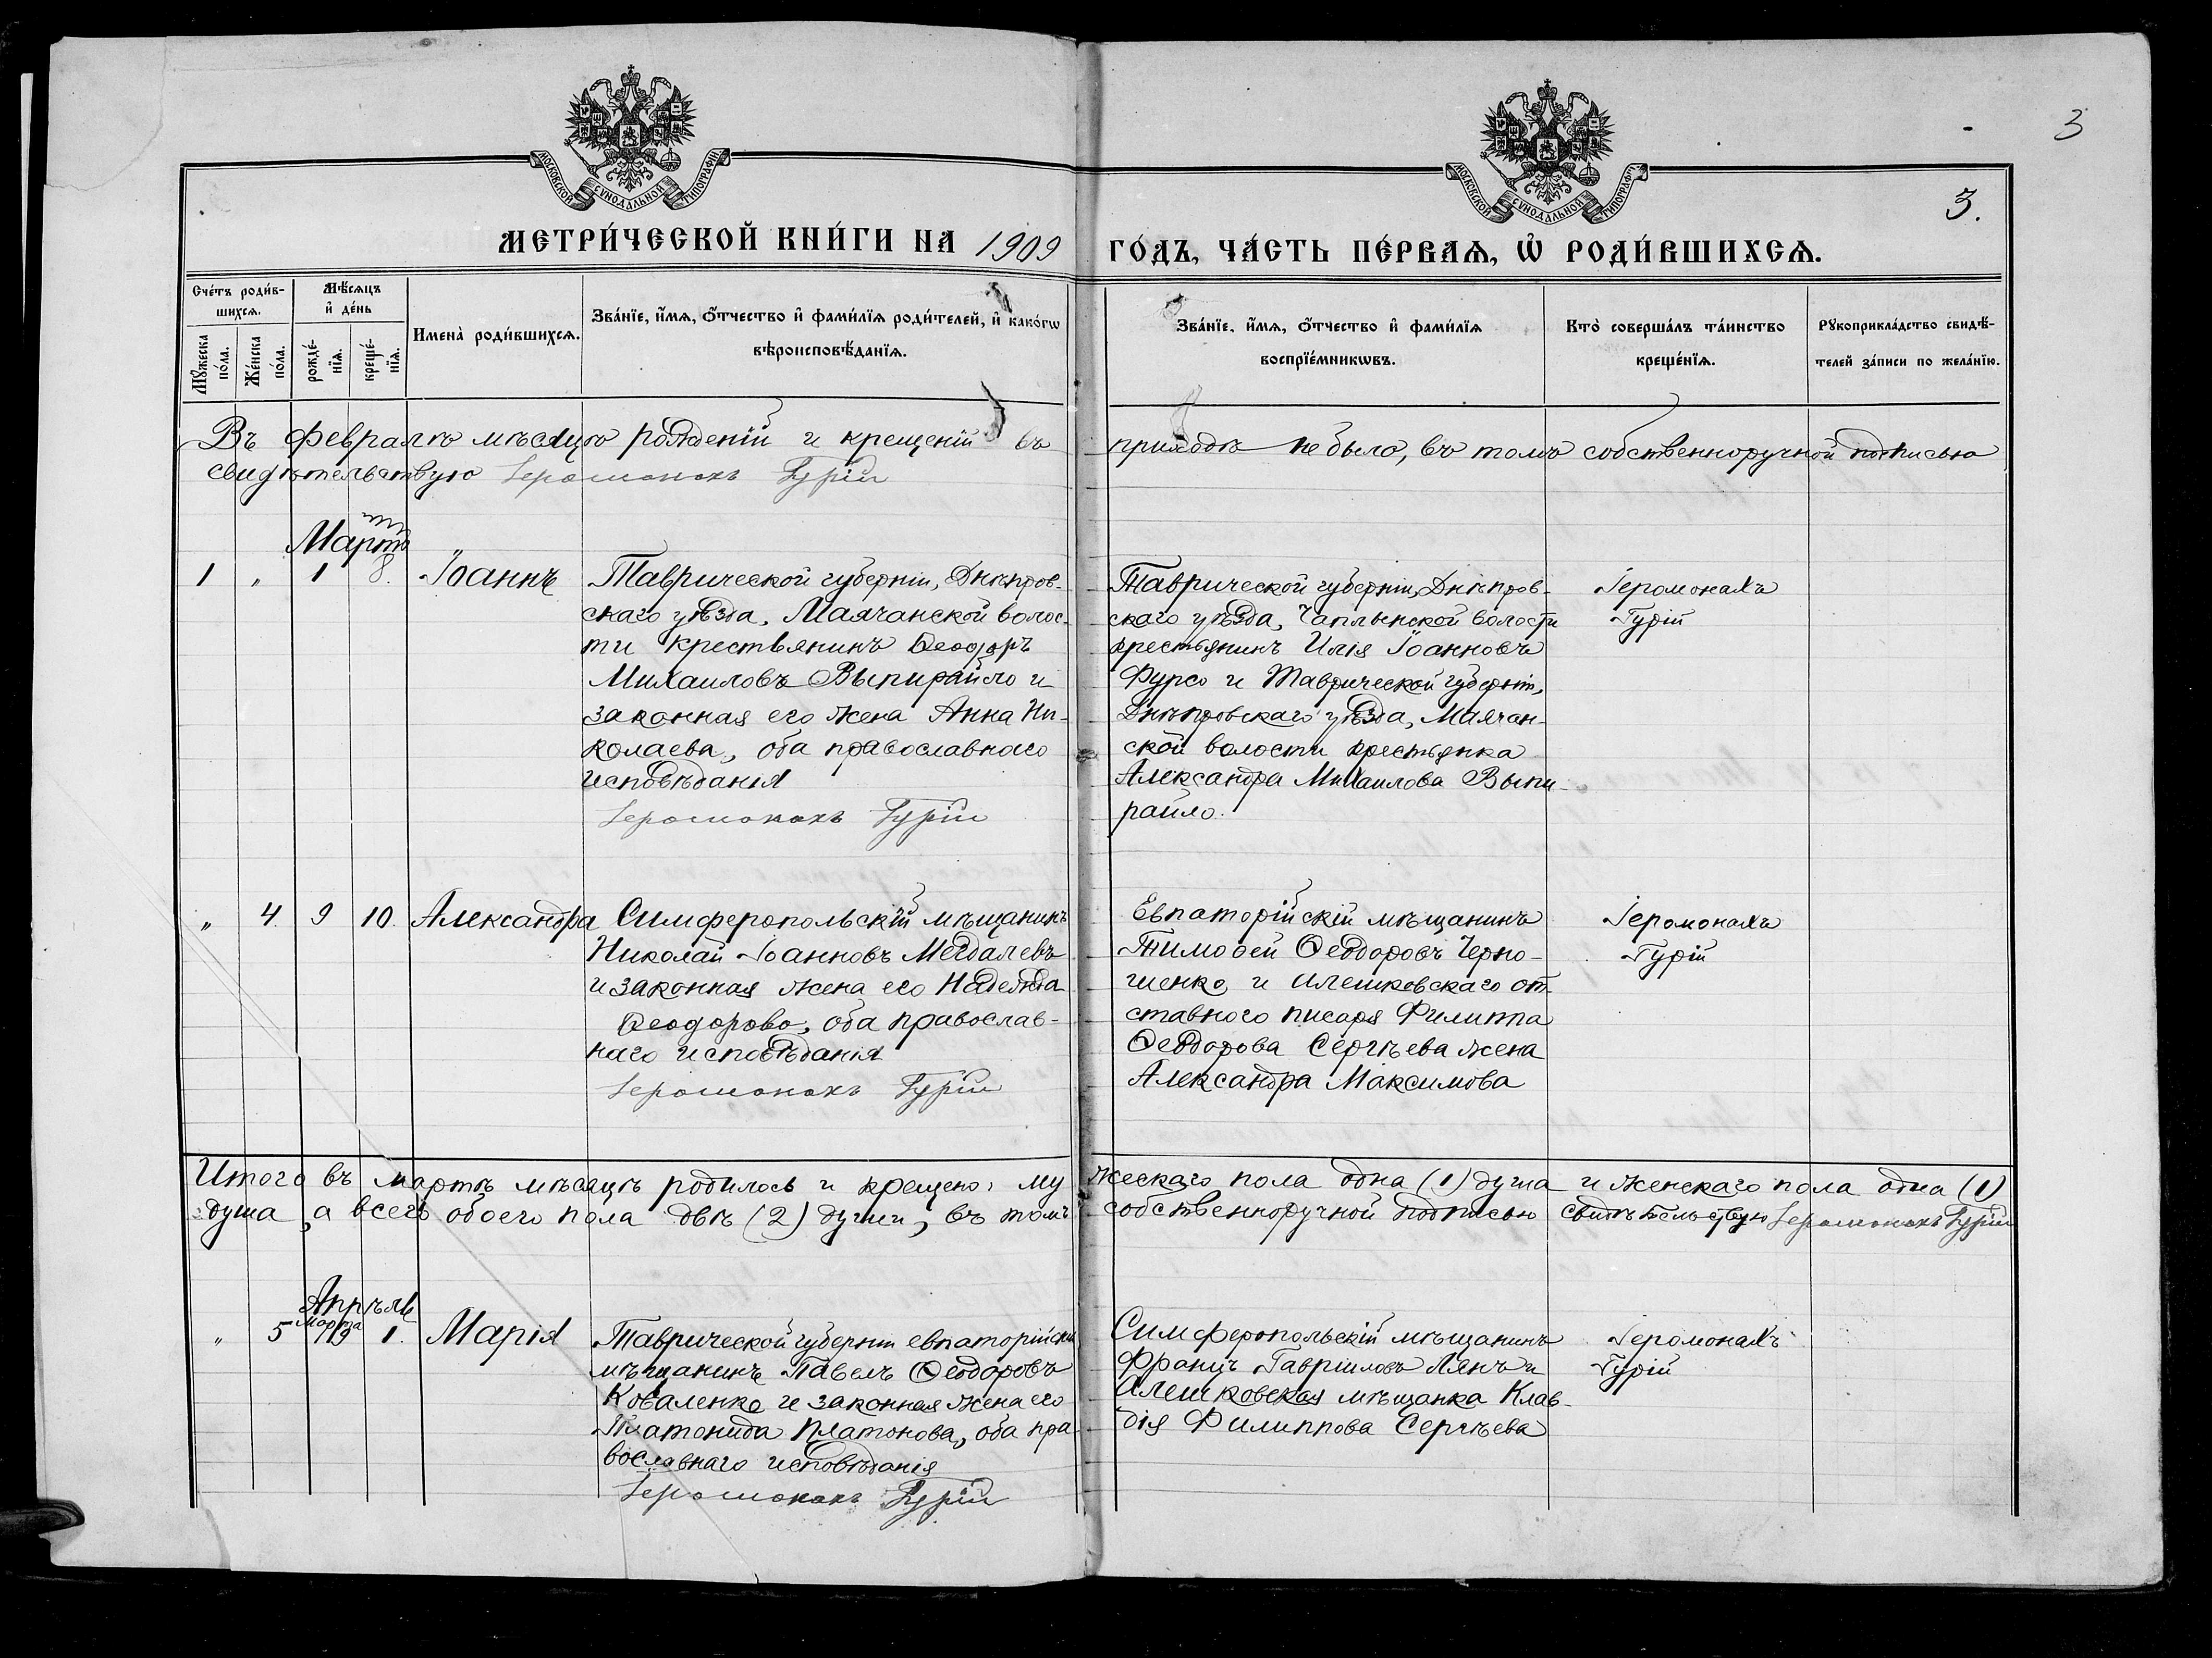 3
МОСКОВСКОЙ СѴНОДАЛЬНОЙ ТИПОГРАФІИ
МОСКОВСКОЙ СѴНОДАЛЬНОЙ ТИПОГРАФІИ
3.
МЕТРИ́ЧЕСКОЙ КНИ́ГИ НА 1909 ГО́ДЪ, ЧА́СТЬ ПЕ́РВАѦ, Ѡ҆ РОДИ́ВШИХСѦ.
Сче́тъ роди́в-
шихсѧ.
Мѣ́сѧцъ
и҆ де́нь
Мꙋ́жеска
по́ла.
Же́нска
по́ла.
рожде́-
нїѧ.
креще́-
нїѧ.
Имена̀ роди́вшихсѧ.
Зва́нїе, и҆́мѧ, ѻ҆́тчество и҆ фами́лїѧ роди́телей, и҆ како́гѡ
вѣроисповѣ́данїѧ.
Зва́нїе, и҆́мѧ, ѻ҆́тчество и҆ фами́лїѧ
воспрїе́мникѡвъ.
Кто̀ соверша́лъ та́инство
креще́нїѧ.
Рꙋкоприкла́дство свидѣ́-
телей за́писи по жела́нїю.
Въ февралѣ мѣсяцѣ рожденій и крещеній въ приходѣ не было, въ томъ собственноручной подписью
свидѣтельствую Іеромонахъ Гурій
Мартъ
1 „ 1 8. Іоаннъ
Таврической губерніи, Днѣпров-
скаго уѣзда, Маячанской волос-
ти крестьянинъ Ѳеодоръ
Михаиловъ Выпирайло и
законная его жена Анна Ни-
колаева, оба православнаго
исповѣданія
Іеромонахъ Гурій
Таврической губерніи, Днѣпров-
скаго уѣзда, Чаплынской волости
крестьянинъ Илія Іоанновъ
Фурсо и Таврической губерніи,
Днѣпровскаго уѣзда, Маячан-
ской волости крестьянка
Александра Михаилова Выпи-
райло.
Іеромонахъ
Гурій
„ 4. 9 10. Александра
Симферопольскій мѣщанинъ
Николай Іоанновъ Мегдалевъ
и законная жена его Надежда
Ѳеодорова, оба православ-
наго исповѣданія
Іеромонахъ Гурій
Евпаторійскій мѣщанинъ
Тимоѳей Ѳеодоровъ Черно-
шенко и Алешковскаго от-
ставного писаря Филиппа
Ѳеодорова Сергѣева жена
Александра Максимова
Іеромонахъ
Гурій
Итого въ мартѣ мѣсяцѣ родилось и крещено: мужескаго пола одна (1) душа и женскаго пола одна (1)
душа, а всего обоего пола двѣ (2) души, въ томъ собственноручной подписью свидѣтельствую Іеромонахъ Гурій
Апрѣль
Марта
„ 5 19 1. Марія
Таврической губерніи евпаторійскій
мѣщанинъ Павелъ Ѳеодоровъ
Коваленко и законная жена его
Платонида Платонова, оба пра-
вославнаго исповѣданія
Іеромонахъ Гурій
Симферопольскій мѣщанинъ
Францъ Гавріиловъ Лянъ и
Алешковская мѣщанка Клав-
дія Филиппова Сергѣева
Іеромонахъ
Гурій